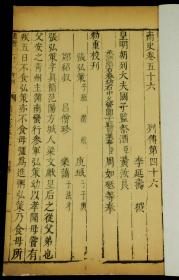 南史卷五十六
列傳第四十六
李延壽 撰
皇明朝列大夫國子監祭酒臣黃汝良
周如砥等奉
勅重校刊
張弘策
庾域
鄭紹叔 呂僧珍 樂藹
張弘策字真簡范陽方城人梁文獻皇后之從父弟也
父安之青州主簿南蠻行參軍弘策幼以孝聞母嘗有
疾五日不食弘策亦不食母彊為進粥弘策乃食母所